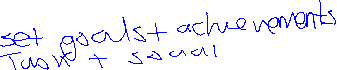 set goals + achievements
Task + social